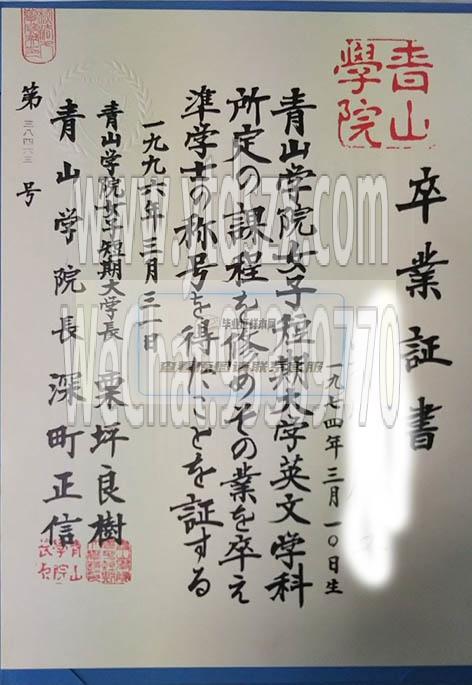 青山
學院
卒業証書
一九七四年三月一〇日生
青山学院女子短期大学英文学科
所定の課程を修めその業を卒え
準学士の称号を得たことを証する
一九九六年三月三一日
青山学院女子短期大学長 栗坪良樹
青山学院長 深町正信
第三八四六三号
毕业证样本网